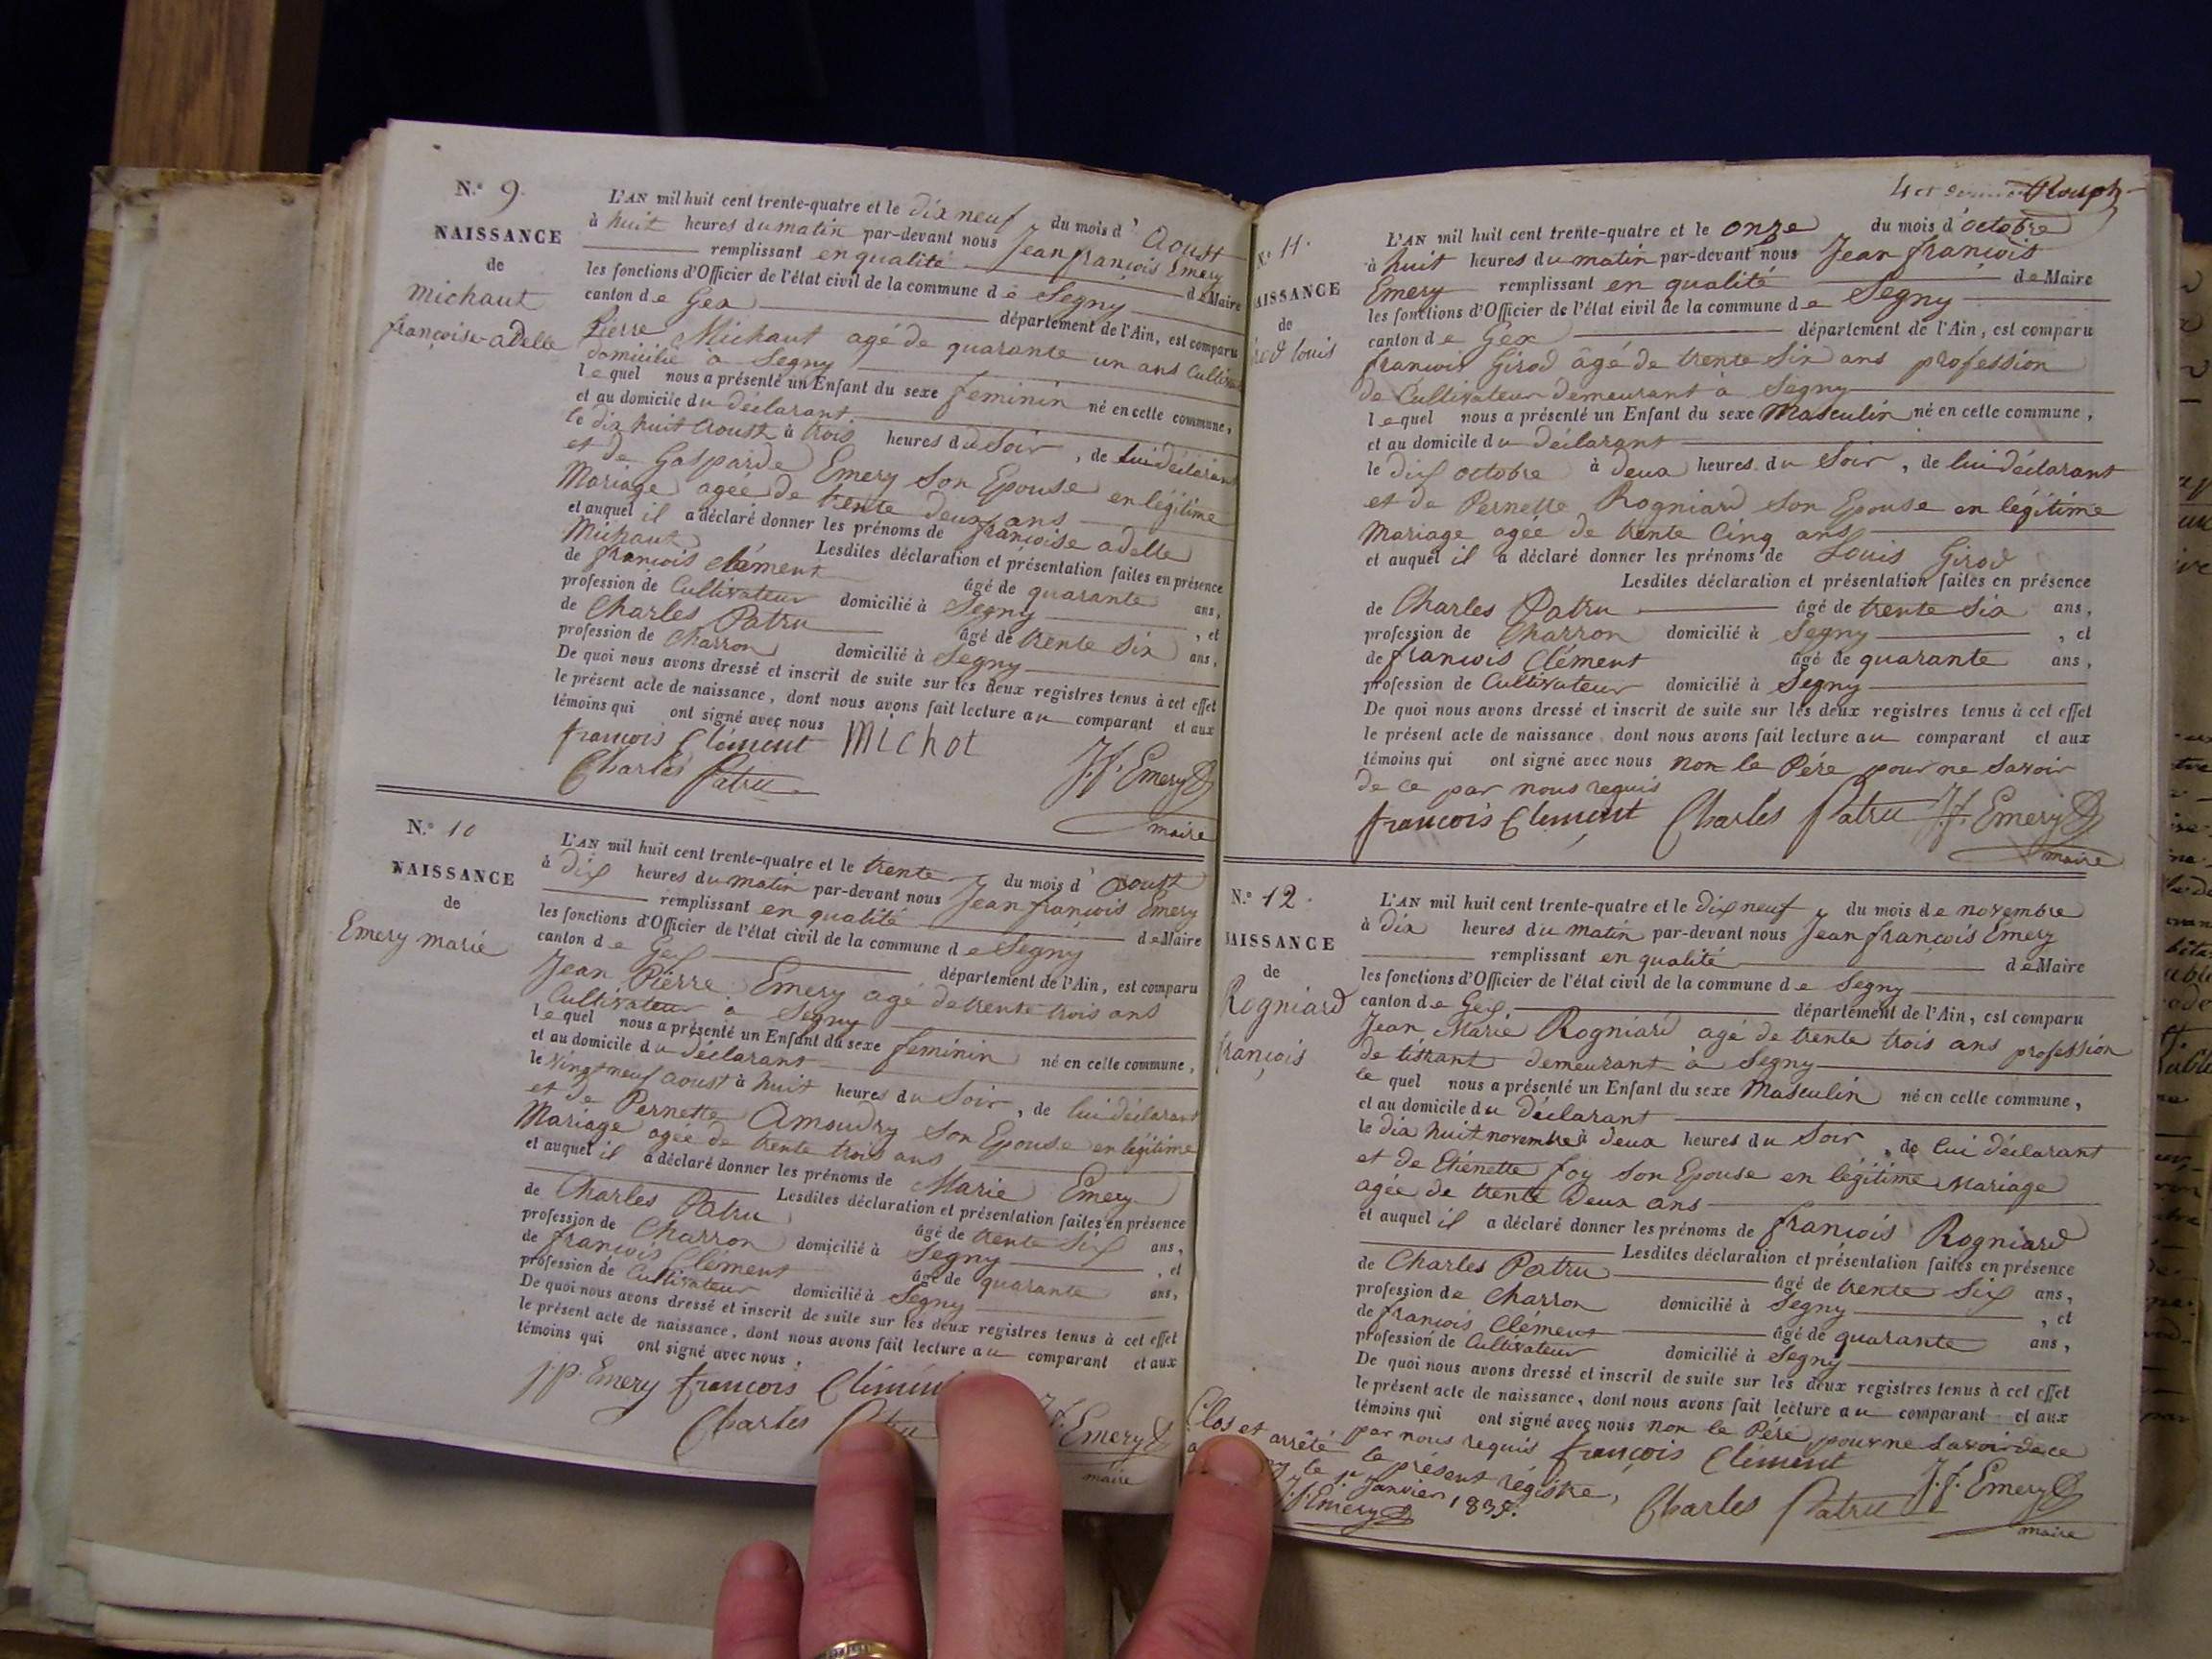 N.° 9.
NAISSANCE
de
Michaut
françoise-adelle
L'AN mil huit cent trente-quatre et le dix neuf du mois d' Aoust
à huit heures du matin par-devant nous Jean françois Emery
remplissant en qualité de Maire
les fonctions d'Officier de l'état civil de la commune de Segny
canton de Gex département de l'Ain, est comparu
Pierre Michaut agé de quarante un ans
domicilié à Segny
lequel nous a présenté un Enfant du sexe feminin né en cette commune,
et au domicile du déclarant
le dix huit Aoust à trois heures du Soir, de lui déclarant
et de Gasparde Emery son Epouse en légitime
Mariage agée de trente deux ans
et auquel il a déclaré donner les prénoms de françoise adelle
Michaut Lesdites déclaration et présentation faites en présence
de françois clément âgé de quarante ans,
profession de Cultivateur domicilié à Segny, et
de Charles Patru âgé de trente six ans,
profession de Charron domicilié à Segny
De quoi nous avons dressé et inscrit de suite sur les deux registres tenus à cet effet
le présent acte de naissance, dont nous avons fait lecture au comparant et aux
témoins qui ont signé avec nous
françois Clément Michot
Charles Patru J.f. Emery
maire
N.° 10
NAISSANCE
de
Emery marie
L'AN mil huit cent trente-quatre et le trente du mois d' Aoust
à dix heures du matin par-devant nous Jean françois Emery
remplissant en qualité de Maire
les fonctions d'Officier de l'état civil de la commune de Segny
canton de Gex département de l'Ain, est comparu
Jean Pierre Emery agé de trente trois ans
Cultivateur à Segny
lequel nous a présenté un Enfant du sexe feminin né en cette commune,
et au domicile du déclarant
le vingt neuf aoust à huit heures du Soir, de lui déclarant
et de Pernette Amoudry son Epouse en légitime
Mariage agée de trente trois ans
et auquel il a déclaré donner les prénoms de Marie Emery
Lesdites déclaration et présentation faites en présence
de Charles Patru âgé de trente six ans,
profession de Charron domicilié à Segny, et
de françois Clément âgé de quarante ans,
profession de Cultivateur domicilié à Segny
De quoi nous avons dressé et inscrit de suite sur les deux registres tenus à cet effet
le présent acte de naissance, dont nous avons fait lecture au comparant et aux
témoins qui ont signé avec nous.
J P. Emery françois
Charles J.f. Emery
maire
4 et
N.° 11.
AISSANCE
de
louis
L'AN mil huit cent trente-quatre et le onze du mois d' octobre
à huit heures du matin par-devant nous Jean françois
Emery remplissant en qualité de Maire
les fonctions d'Officier de l'état civil de la commune de Segny
canton de Gex département de l'Ain, est comparu
françois Girod âgé de trente six ans profession
de Cultivateur demeurant à Segny
lequel nous a présenté un Enfant du sexe Masculin né en cette commune,
et au domicile du déclarant
le dix octobre à deux heures du Soir, de lui déclarant
et de Pernette Rogniard son Epouse en légitime
Mariage agée de trente cinq ans
et auquel il a déclaré donner les prénoms de Louis Girod
Lesdites déclaration et présentation faites en présence
de Charles Patru âgé de trente six ans,
profession de Charron domicilié à Segny, et
de françois Clément âgé de quarante ans,
profession de Cultivateur domicilié à Segny
De quoi nous avons dressé et inscrit de suite sur les deux registres tenus à cet effet
le présent acte de naissance dont nous avons fait lecture au comparant et aux
témoins qui ont signé avec nous non le Père pour ne savoir
de ce par nous requis
françois Clément Charles Patru J.f. Emery
maire
N.° 12.
AISSANCE
de
Rogniard
françois
L'AN mil huit cent trente-quatre et le dix neuf du mois de novembre
à dix heures du matin par-devant nous Jean françois Emery
remplissant en qualité de Maire
les fonctions d'Officier de l'état civil de la commune de Segny
canton de Gex département de l'Ain, est comparu
Jean Marie Rogniard agé de trente trois ans profession
de tissrant demeurant à Segny
le quel nous a présenté un Enfant du sexe Masculin né en cette commune,
et au domicile du déclarant
le dix huit novembre à deux heures du Soir, de lui déclarant
et de Etiénette foy son Epouse en légitime Mariage
agée de trente deux ans
et auquel il a déclaré donner les prénoms de françois Rogniard
Lesdites déclaration et présentation faites en présence
de Charles Patru âgé de trente six ans,
profession de Charron domicilié à Segny, et
de françois Clément âgé de quarante ans,
profession de Cultivateur domicilié à Segny
De quoi nous avons dressé et inscrit de suite sur les deux registres tenus à cet effet
le présent acte de naissance, dont nous avons fait lecture au comparant et aux
témoins qui ont signé avec nous non le Père pour ne savoir de ce
par nous requis françois Clément
Charles Patru J.f. Emery
maire
Clos et arrêté le présent régistre,
le 1er Janvier 1835.
J.f. Emery